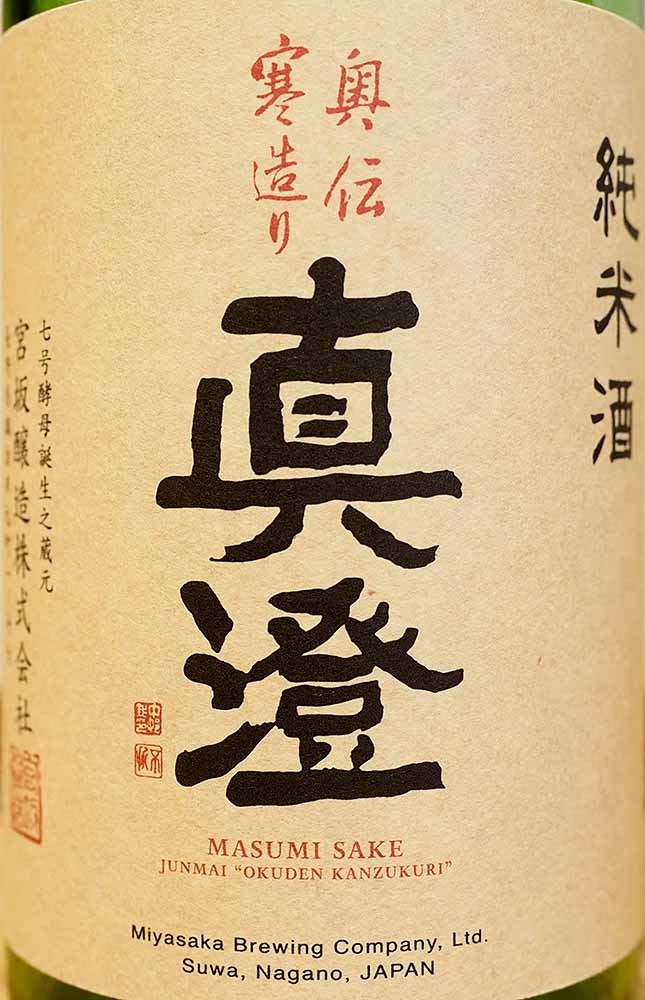 純米酒
奥伝
寒造り
真澄
七号酵母誕生之蔵元
宮坂醸造株式会社
MASUMI SAKE
JUNMAI “OKUDEN KANZUKURI”
Miyasaka Brewing Company, Ltd.
Suwa, Nagano, JAPAN